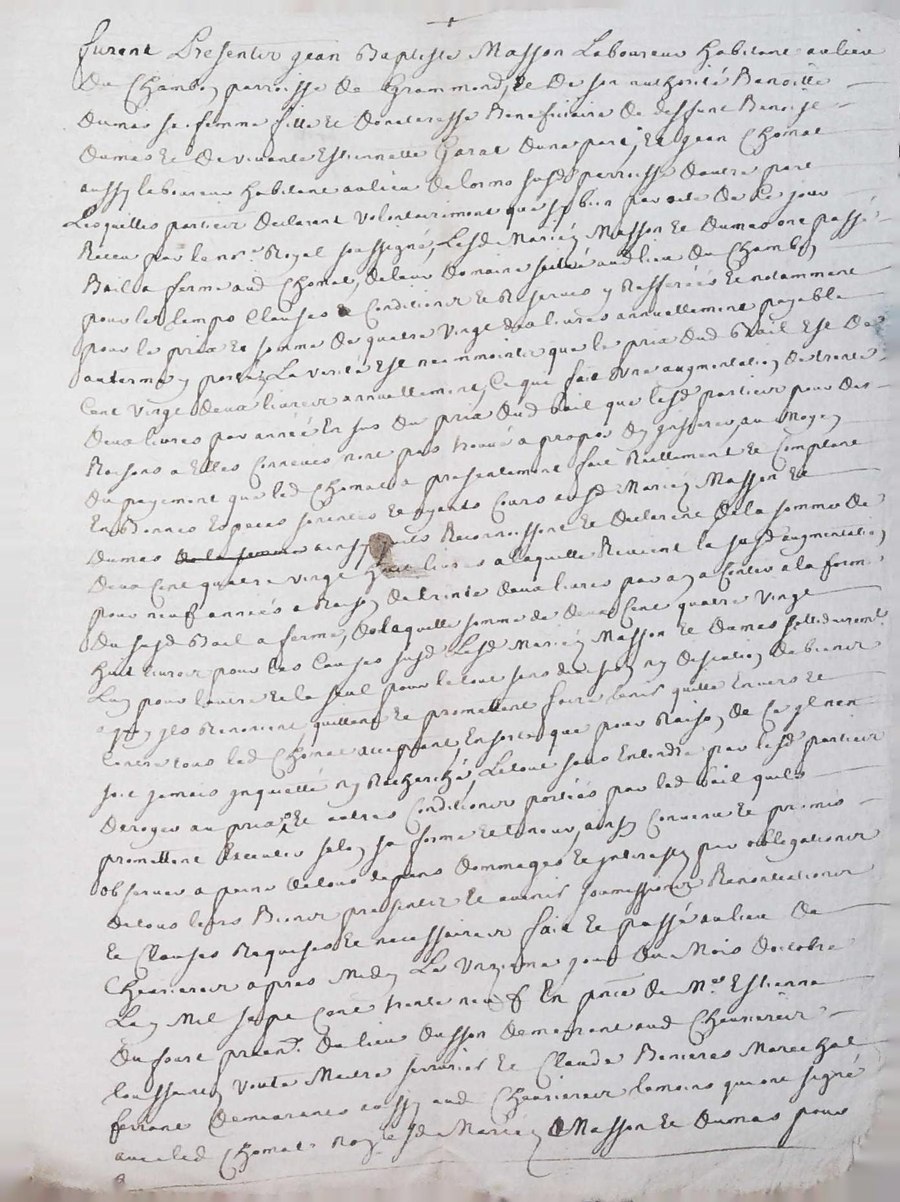 furent Presentir Jean Baptiste Masson Laboureur habitant au lieu
Du Chambon parroisse de Grammond, Et De son authorité Benoitte
Dumas sa femme fille Et Donateresse Beneficiaire De deffunt Benoist
Dumas Et de vivante Estiennette Garat Dune part, Et Jean Chomat
aussy laboureur habitant au lieu De lormo susd parroisse Dautre part
Lesquelles partier Declarent Volontairement que par acte De Ce jour
Receu par le nore Royal soussigné, Lesd Mariéz Masson Et Dumas ont passé
Bail a ferme aud Chomat, De leur Domaine scitué aud lieu Du Chambon
pour les temps Clauses & Conditionr Et Reserves y Refferées Et notamment
pour le prix Et somme De quatre Vingt dix livres annuellement payable
au terme y porté, La verité Est neammointr que le prix Dud Bail Est De
Cent Vingt deux livrer annuellement, Ce qui fait Une augmentation De trente
Deux livres par année En sus Du prix Dud bail que lesd partier pour Des
Raisons a Elles Connues nont pas trouvé a propor Dy jnserer, au Moyen
Du payement que led Chomat a presentement fait Reellement Et Comptant
En Bonnes Especes Et ayants Cours ausd Mariéz Masson Et
Dumas ainsy quils Reconnoissent Et Declarent De la somme De
Deux Cent quatre vingt huit livres a laquelle Revient la susd augmentation
pour neuf années a Raison De trente deux livres par an a Conter a la forme
Du susd Bail a ferme, De laquelle somme de deux Cent quatre Vingt
huit livrer pour les Causes susd Lesd Mariéz Masson Et Dumas sollidairemt
Lun pour lautre Et le seul pour le tout sans division ny Discution De bienr
a quoy jls Renoncent quittent Et promettent faire tenir quitte Envers Et
Contre tous led Chomat acceptant, En sorte que pour Raison De Ce jl nen
soit jamais jnquietté ny Recherché, Le tout sans Entendre par lesd partier
Deroger au prix, Et autres Conditionr portées par led bail quils
promettent Executer selon sa forme Et teneur, ainsy Convenu Et promis
observer a peine De tous Depens Dommages Et jnterestz par obligationr
De tous leurs Bienr presentir Et avenir soumissionr Renontiationr
Et Clauses Requises Et necessairer fait Et passé au lieu De
Chevrierer apres Midy Le Unzieme jour Du Mois Doctobre
Lan Mil sept Cent trente neuf En pnce De Mre Estienne
Du faure Du lieu Dusson Demeurant aud Chevrierer
Maitre serrurier Et Claude Benieres Marechal
ferrant Demeurants aussy aud Chevrierer temoins qui ont signé
avec led Chomat non lesd Mariéz Masson Et Dumas pour